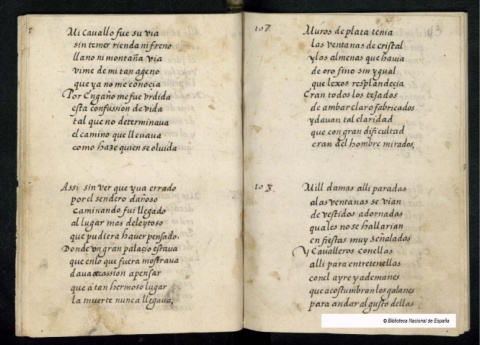 Mi Cauallo fue su via
sin temer rienda ni freno
llano ni montaña via
vime de mi tan ageno
que ya no me conocia
Por Engaño me fue vrdido
esta confussion de vida
tal que no determinaua
el camino que lleuaua
como haze quien se oluida
Assi sin ver que yua errado
por el sendero dañoso
caminando fui llegado
al lugar mas deleytoso
que pudiera hauer pensado.
Donde vn gran palaçio estaua
que en lo que fuera mostraua
daua occassion a pensar
que a tan hermoso lugar
la muerte nunca llegaua,
107.
Muros de plata tenia
las ventanas de cristal
y los almenas que hauia
de oro fino sin ygual
que lexos resplandeçia
Eran todos los tejados
de ambar claro fabricados
y dauan tal claridad
que con gran dificultad
eran del hombre mirados,
108.
Mill damas alli paradas
a las ventanas se vian
de vestidos adornadas
quales no se hallarian
en fiestas muy señaladas
Y Caualleros con ellas
alli para entretenellas
con el ayre y ademanes
que acostumbran los galanes
para andar al gusto dellas
© Biblioteca Nacional de España